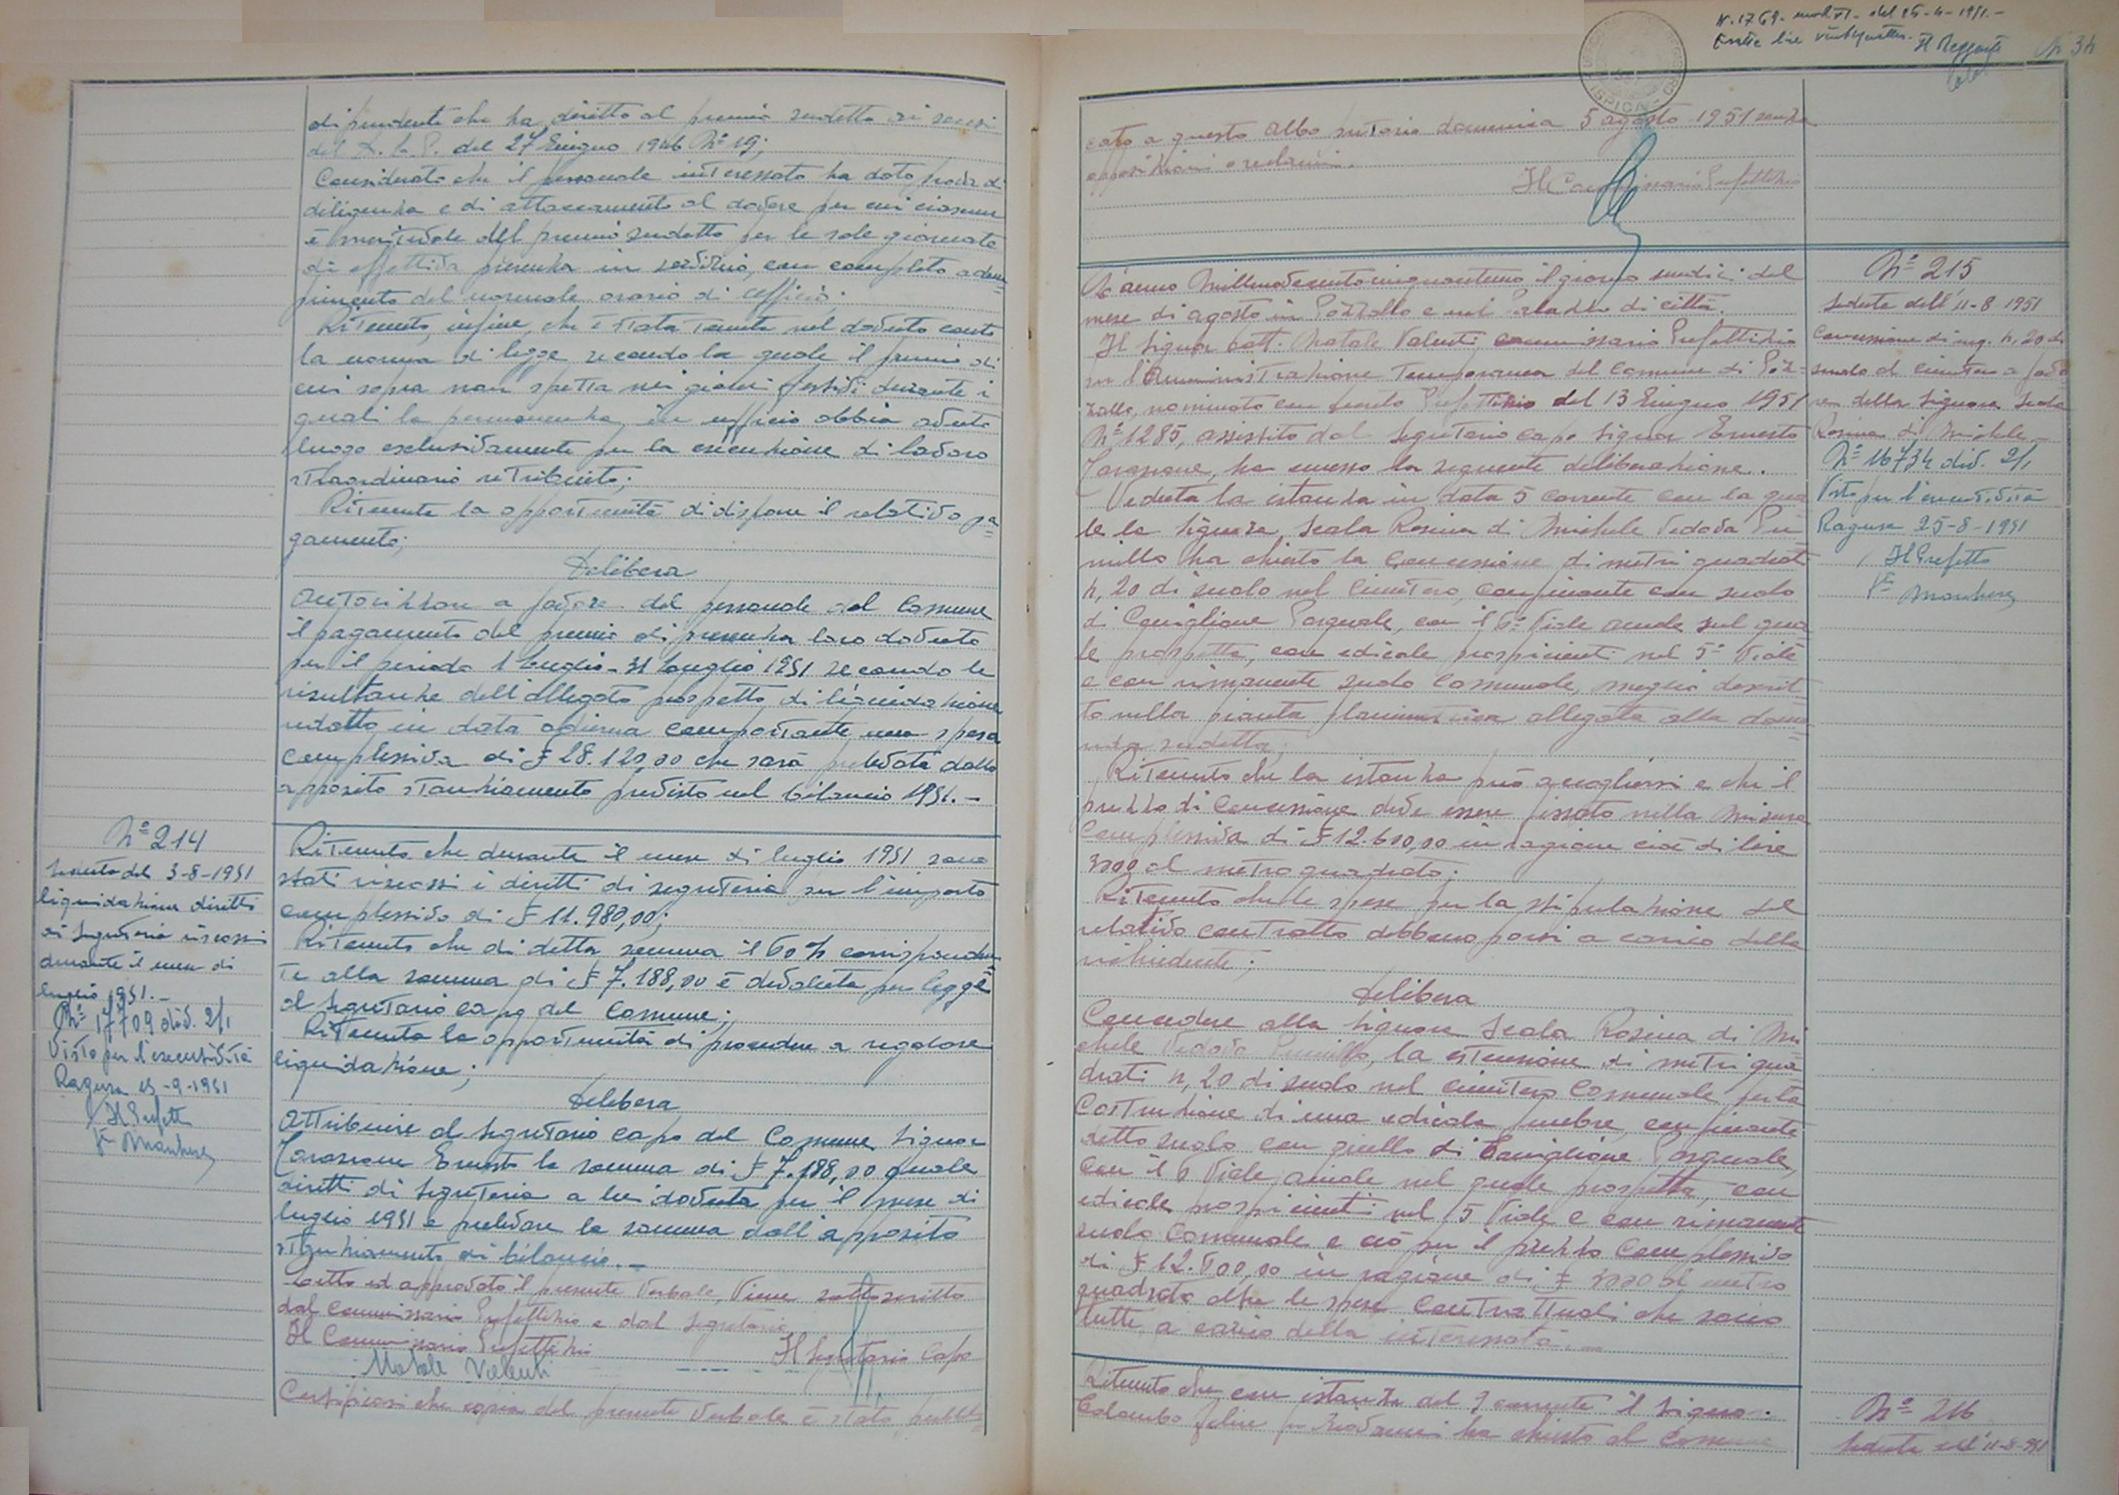 dipendente che ha diritto al premio sudetto ai sensi
del D. L. P. del 27 Giugno 1946 N° 19;
Considerato che il personale interessato ha dato prova di
diligenza e di attaccamento al dovere per cui ciascuno
è meritevole del premio sudetto per le sole giornate
di effettiva presenza in servizio, con completo adem=
pimento del normale orario di ufficio.
Ritenuto, infine, che è stata tenuta nel dovuto conto
la norma di legge secondo la quale il premio di
cui sopra non spetta nei giorni festivi durante i
quali la permanenza in ufficio abbia avuto
luogo esclusivamente per la esecuzione di lavoro
straordinario retribuito;
Ritenuta la opportunità di disporre il relativo pa=
gamento;
Delibera
Autorizzare a favore del personale del Comune
il pagamento del premio di presenza loro dovuto
per il periodo 1 Luglio - 31 Luglio 1951 secondo le
risultanze dell'allegato prospetto di liquidazione
redatto in data odierna comportante una spesa
complessiva di £ 28.120,00 che sarà prelevata dallo
apposito stanziamento previsto nel bilancio 1951.-
N° 214
Seduta del 3-8-1951
liquidazione diritti
di Segreteria riscossi
durante il mese di
luglio 1951.-
N° 17709 div. 2/1
Visto per l'esecutività
Ragusa 15-9-1951
Il Prefetto
Ritenuto che durante il mese di luglio 1951 sono
stati riscossi i diritti di segreteria per l'importo
complessivo di £ 11.980,00;
Ritenuto che di detta somma il 60% corrisponden
te alla somma di £ 7.188,00 è devoluta per legge
al Segretario capo del Comune;
Ritenuta la opportunità di procedere a regolare
liquidazione;
Delibera
Attribuire al Segretario capo del Comune Signor
Ernesto la somma di £ 7.188,00 quale
diritti di Segreteria a lui dovuta per il mese di
luglio 1951 e prelevare la somma dall'apposito
stanziamento di bilancio.-
Letto ed approvato il presente Verbale, Viene sottoscritto
dal Commissario Prefettizio e dal Segretario
Il Commissario Prefettizio
Il Segretario Capo
Natale Valenti
Certificasi che copia del presente Verbale è stata pubbli=
N. 1769 mod. VI - del 25-4-1951.-
Esatte lire ventiquattro. Il Reggente
N° 34
ISPICA
cata a questo Albo Pretorio domenica 5 agosto 1951 senza
opposizioni o reclami.
Il Commissario Prefettizio
L'anno Millenovecentocinquantuno, il giorno undici del
mese di agosto in Pozzallo e nel Palazzo di città.
Il Signor Dott. Natale Valenti, commissario Prefettizio
per l'Amministrazione Temporanea del Comune di Poz=
zallo, nominato con decreto Prefettizio del 13 Giugno 1951
N° 1285, assistito dal Segretario capo Signor Ernesto
ha emesso la seguente deliberazione.
Veduta la istanza in data 5 corrente con la qua
le la Signora Scala Rosina di Michele Vedova
ha chiesto la concessione di metri quadrati
4,20 di suolo nel Cimitero, confinante con suolo
di Caniglione Pasquale, con il 6° Viale sul qua
le prospetta, con edicole prospicienti nel 5° Viale
e con rimanente suolo Comunale, meglio descrit
to nella pianta planimetrica allegata alla doma
nda sudetta;
Ritenuto che la istanza può accogliersi e che il
prezzo di Concessione deve essere fissato nella misura
Complessiva di £ 12.600,00 in ragione cioè di lire
3000 al metro quadrato;
Ritenuto che le spese per la stipulazione del
relativo contratto debbano porsi a carico della
richiedente;
Delibera
Concedere alla Signora Scala Rosina di Mi
chele Vedova la estensione di metri qua
drati 4,20 di suolo nel cimitero Comunale per la
Costruzione di una edicola funebre, confinante
detto suolo con quello di Caniglione Pasquale,
con il 6 Viale nel quale prospetta, con
edicole prospicienti nel 5 Viale e con rimanente
suolo Comunale e ciò per il prezzo Complessivo
di £ 12.600,00 in ragione di £ 3000 al metro
quadrato oltre le spese Contrattuali che sono
tutte a carico della interessata.-
N° 215
Seduta dell'11-8 1951
Concessione di mq. 4,20 di
suolo al cimitero a favo
re della Signora Scala
Rosina di Michele.-
N° 16734 div. 2/1
Visto per l'esecutività
Ragusa 25-8-1951
Il Prefetto
Ritenuto che con istanza del 9 corrente il Signor
Colombo Felice fu Giovanni ha chiesto al Comune
N° 216
Seduta dell'11-8-951